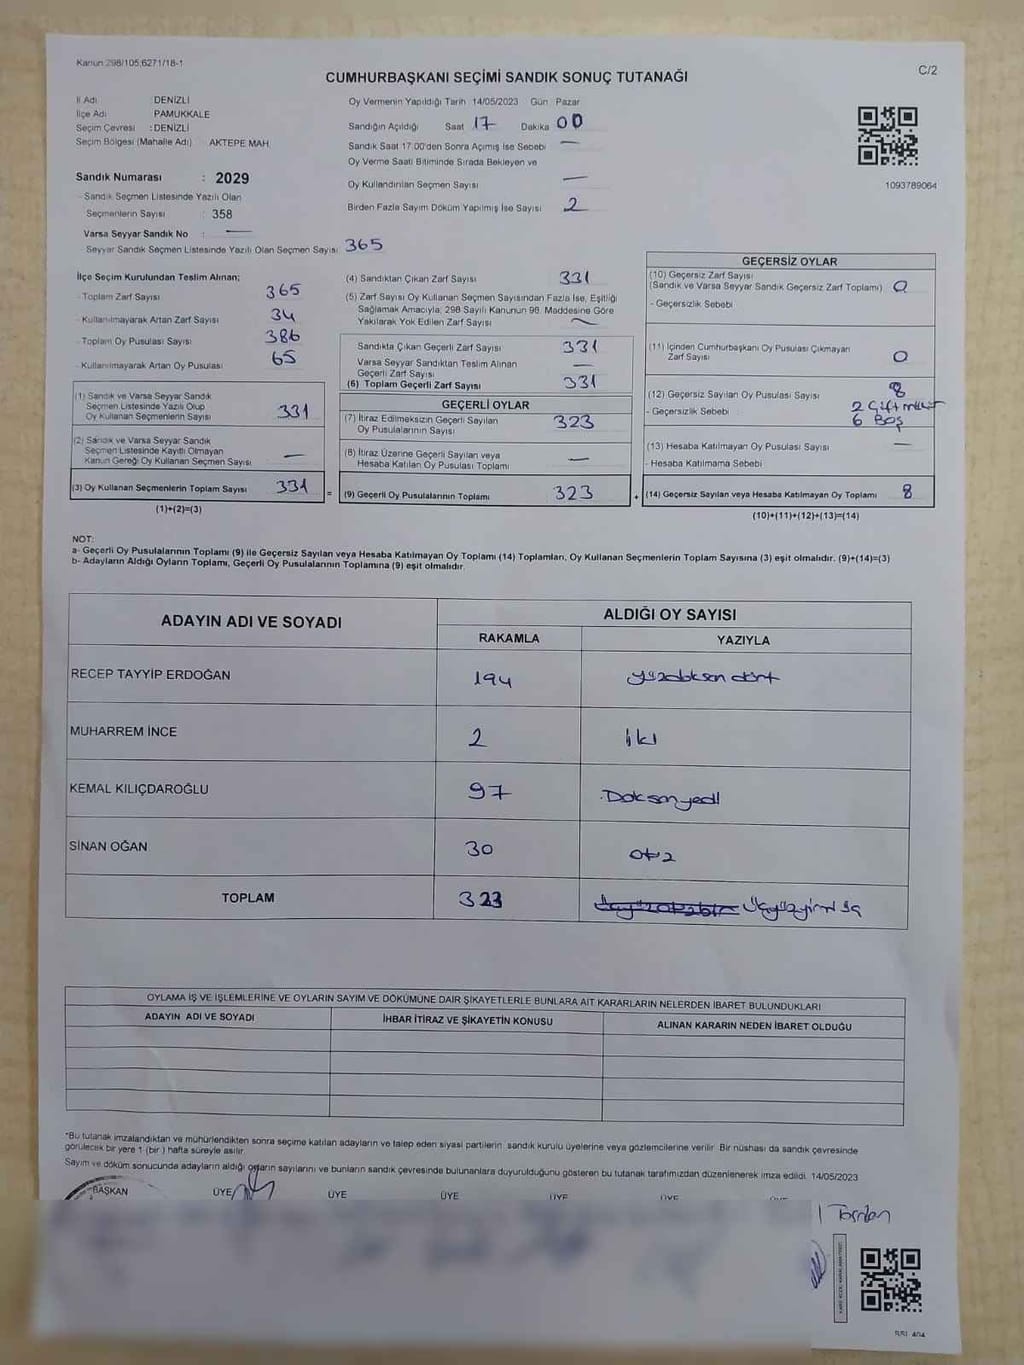 Kanun 298/105;6271/18-1
C/2
CUMHURBAŞKANI SEÇİMİ SANDIK SONUÇ TUTANAĞI
İl Adı DENİZLİ
İlçe Adı PAMUKKALE
Seçim Çevresi : DENİZLİ
Seçim Bölgesi (Mahalle Adı) AKTEPE MAH.
Sandık Numarası : 2029
- Sandık Seçmen Listesinde Yazılı Olan
Seçmenlerin Sayısı : 358
Varsa Seyyar Sandık No : —
Seyyar Sandık Seçmen Listesinde Yazılı Olan Seçmen Sayısı 365
Oy Vermenin Yapıldığı Tarih 14/05/2023 Gün Pazar
Sandığın Açıldığı Saat 17 Dakika 00
Sandık Saat 17.00'den Sonra Açımış İse Sebebi —
Oy Verme Saati Bitiminde Sırada Bekleyen ve
Oy Kullandırılan Seçmen Sayısı —
Birden Fazla Sayım Döküm Yapılmış İse Sayısı 2
1093789064
İlçe Seçim Kurulundan Teslim Alınan;
- Toplam Zarf Sayısı 365
- Kullanılmayarak Artan Zarf Sayısı 34
- Toplam Oy Pusulası Sayısı 386
- Kullanılmayarak Artan Oy Pusulası 65
(1) Sandık ve Varsa Seyyar Sandık
Seçmen Listesinde Yazılı Olup
Oy Kullanan Seçmenlerin Sayısı 331
(2) Sandık ve Varsa Seyyar Sandık
Seçmen Listesinde Kayıtlı Olmayan
Kanun Gereği Oy Kullanan Seçmen Sayısı —
(3) Oy Kullanan Seçmenlerin Toplam Sayısı 331
(1)+(2)=(3)
(4) Sandıktan Çıkan Zarf Sayısı 331
(5) Zarf Sayısı Oy Kullanan Seçmen Sayısından Fazla İse, Eşitliği
Sağlamak Amacıyla, 298 Sayılı Kanunun 98. Maddesine Göre
Yakılarak Yok Edilen Zarf Sayısı
Sandıkta Çıkan Geçerli Zarf Sayısı 331
Varsa Seyyar Sandıktan Teslim Alınan
Geçerli Zarf Sayısı —
(6) Toplam Geçerli Zarf Sayısı 331
GEÇERLİ OYLAR
(7) İtiraz Edilmeksizin Geçerli Sayılan
Oy Pusulalarının Sayısı 323
(8) İtiraz Üzerine Geçerli Sayılan veya
Hesaba Katılan Oy Pusulası Toplamı —
=
(9) Geçerli Oy Pusulalarının Toplamı 323
+
GEÇERSİZ OYLAR
(10) Geçersiz Zarf Sayısı
(Sandık ve Varsa Seyyar Sandık Geçersiz Zarf Toplamı) 0
- Geçersizlik Sebebi
(11) İçinden Cumhurbaşkanı Oy Pusulası Çıkmayan
Zarf Sayısı 0
(12) Geçersiz Sayılan Oy Pusulası Sayısı 8
- Geçersizlik Sebebi : 2 Çift mühür
6 Boş
(13) Hesaba Katılmayan Oy Pusulası Sayısı —
- Hesaba Katılmama Sebebi
(14) Geçersiz Sayılan veya Hesaba Katılmayan Oy Toplamı 8
(10)+(11)+(12)+(13)=(14)
NOT:
a- Geçerli Oy Pusulalarının Toplamı (9) ile Geçersiz Sayılan veya Hesaba Katılmayan Oy Toplamı (14) Toplamları, Oy Kullanan Seçmenlerin Toplam Sayısına (3) eşit olmalıdır. (9)+(14)=(3)
b- Adayların Aldığı Oyların Toplamı, Geçerli Oy Pusulalarının Toplamına (9) eşit olmalıdır.
ADAYIN ADI VE SOYADI
ALDIĞI OY SAYISI
RAKAMLA YAZIYLA
RECEP TAYYİP ERDOĞAN 194 dört
MUHARREM İNCE 2 iki
KEMAL KILIÇDAROĞLU 97 Doksanyedi
SİNAN OĞAN 30 otuz
TOPLAM 323 Üçyüzyirmi üç
OYLAMA İŞ VE İŞLEMLERİNE VE OYLARIN SAYIM VE DÖKÜMÜNE DAİR ŞİKAYETLERLE BUNLARA AİT KARARLARIN NELERDEN İBARET BULUNDUKLARI
ADAYIN ADI VE SOYADI İHBAR İTİRAZ VE ŞİKAYETİN KONUSU ALINAN KARARIN NEDEN İBARET OLDUĞU
*Bu tutanak imzalandıktan ve mühürlendikten sonra seçime katılan adayların ve talep eden siyasi partilerin sandık kurulu üyelerine veya gözlemcilerine verilir. Bir nüshası da sandık çevresinde
görülecek bir yere 1 (bir ) hafta süreyle asılır.
Sayım ve döküm sonucunda adayların aldığı oyların sayılarını ve bunların sandık çevresinde bulunanlara duyurulduğunu gösteren bu tutanak tarafımızdan düzenlenerek imza edildi. 14/05/2023
BAŞKAN ÜYE ÜYE ÜYE ÜYE ÜYE